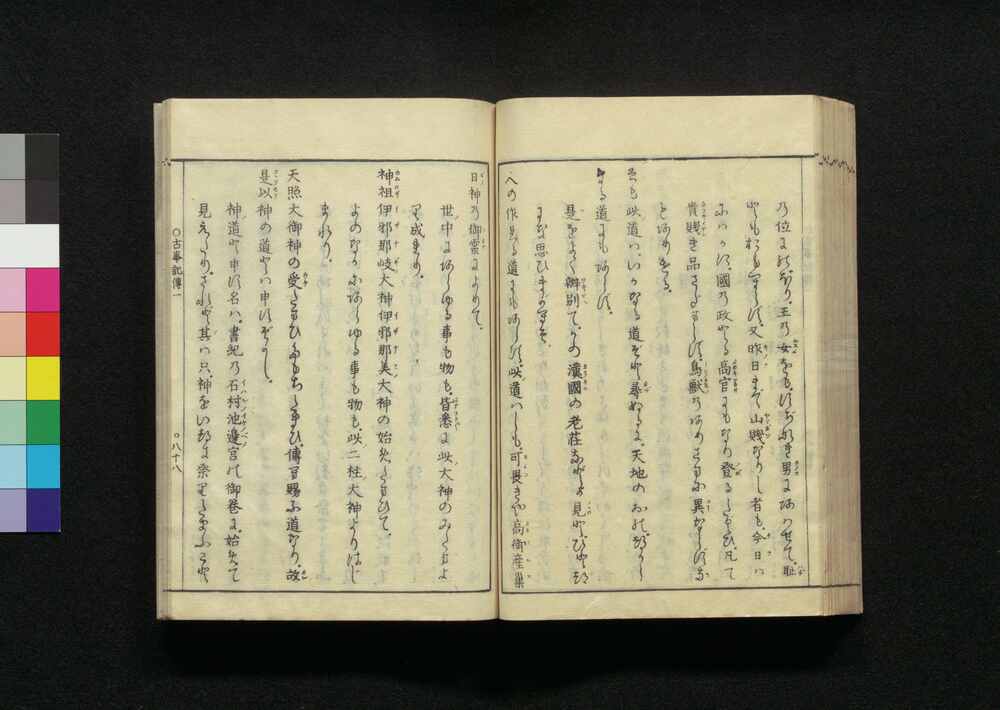 乃位にのぼり。王乃女をも。すぢなき男にあはせて。恥
ともおもひたらず。又昨日まで山賤なりし者も。今日は
にはかに。國の政とる高官にもなり登るたぐひ。凡て
貴賤き品さだまらず。鳥獸のありさまに異ならずな
もありける。
そも此道は。いかなる道ぞと尋ぬるに。天地のおのづから
なる道にもあらず。
是をよく辨別て。かの漢國の老莊などが見と。ひとつ
にな思ひまがへそ。
人の作れる道にもあらず。此道はしも。可畏きや高御産巢
日神乃御靈によりて。
世中にあらゆる事も物も。皆悉に此大神のみたまよ
り成れり。
神祖伊邪那岐大神伊邪那美大神の始めたまひて。
よのなかにあらゆる事も物も。此二柱大神よりはじ
まれり。
天照大御神の受たまひたもちたまひ。傳へ賜ふ道なり。故
是以神の道とは申すぞかし。
神道と申す名は。書紀乃石村池邊宮の御卷に。始めて
見えたり。されど其は只。神をいつき祭りたまふこと
○古事記傳一
○八十八